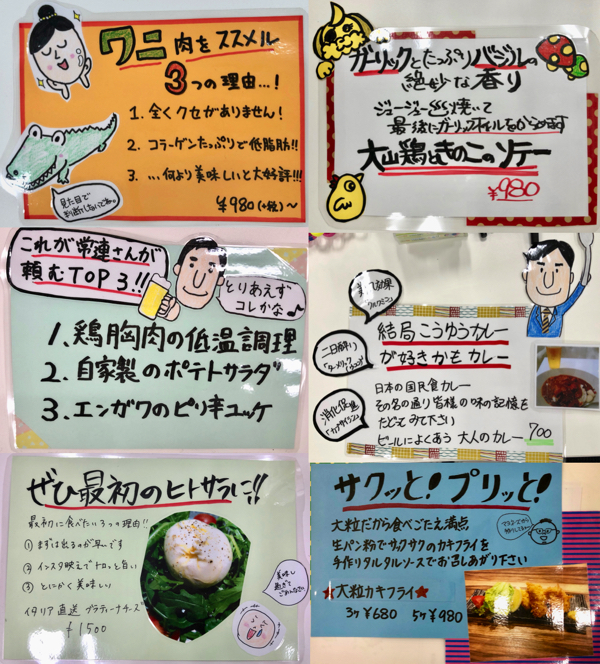 ワニ肉をススメル
3つの理由…!
1. 全くクセがありません!
2. コラーゲンたっぷりで低脂肪!!
3. …何より美味しいと大好評!!!
¥980(+税)~
見た目で
判断しないでね。
ガーリックとたっぷりバジルの
絶妙な香り
ジュージュー焼いて
最後にガーリックオイルをからめます
大山鶏ときのこのソテー
¥980
これが常連さんが
頼むTOP3!!
とりあえず
コレかな♪
1、鶏胸肉の低温調理
2、自家製のポテトサラダ
3、エンガワのピリ辛ユッケ
結局こうゆうカレー
が好きかもカレー
日本の国民食カレー
その名の通り皆様の味の記憶を
たどってみて下さい
ビールによくあう 大人のカレー 700
消化促進
「カプサイシン」
ぜひ最初のヒトサラに!!
最初に食べたい3つの理由!!
① まずは出るのが早いです
② インスタ映えでトロッと旨い
③ とにかく美味しい
イタリア直送 ブラティーナチーズ
¥1500
美味し
過ぎて
ごめんなさい
サクッと!プリッと!
大粒だから食べごたえ満点
生パン粉でサックサクのカキフライを
手作りタルタルソースでお召しあがり下さい
★大粒カキフライ★
3ケ¥680 5ケ¥980